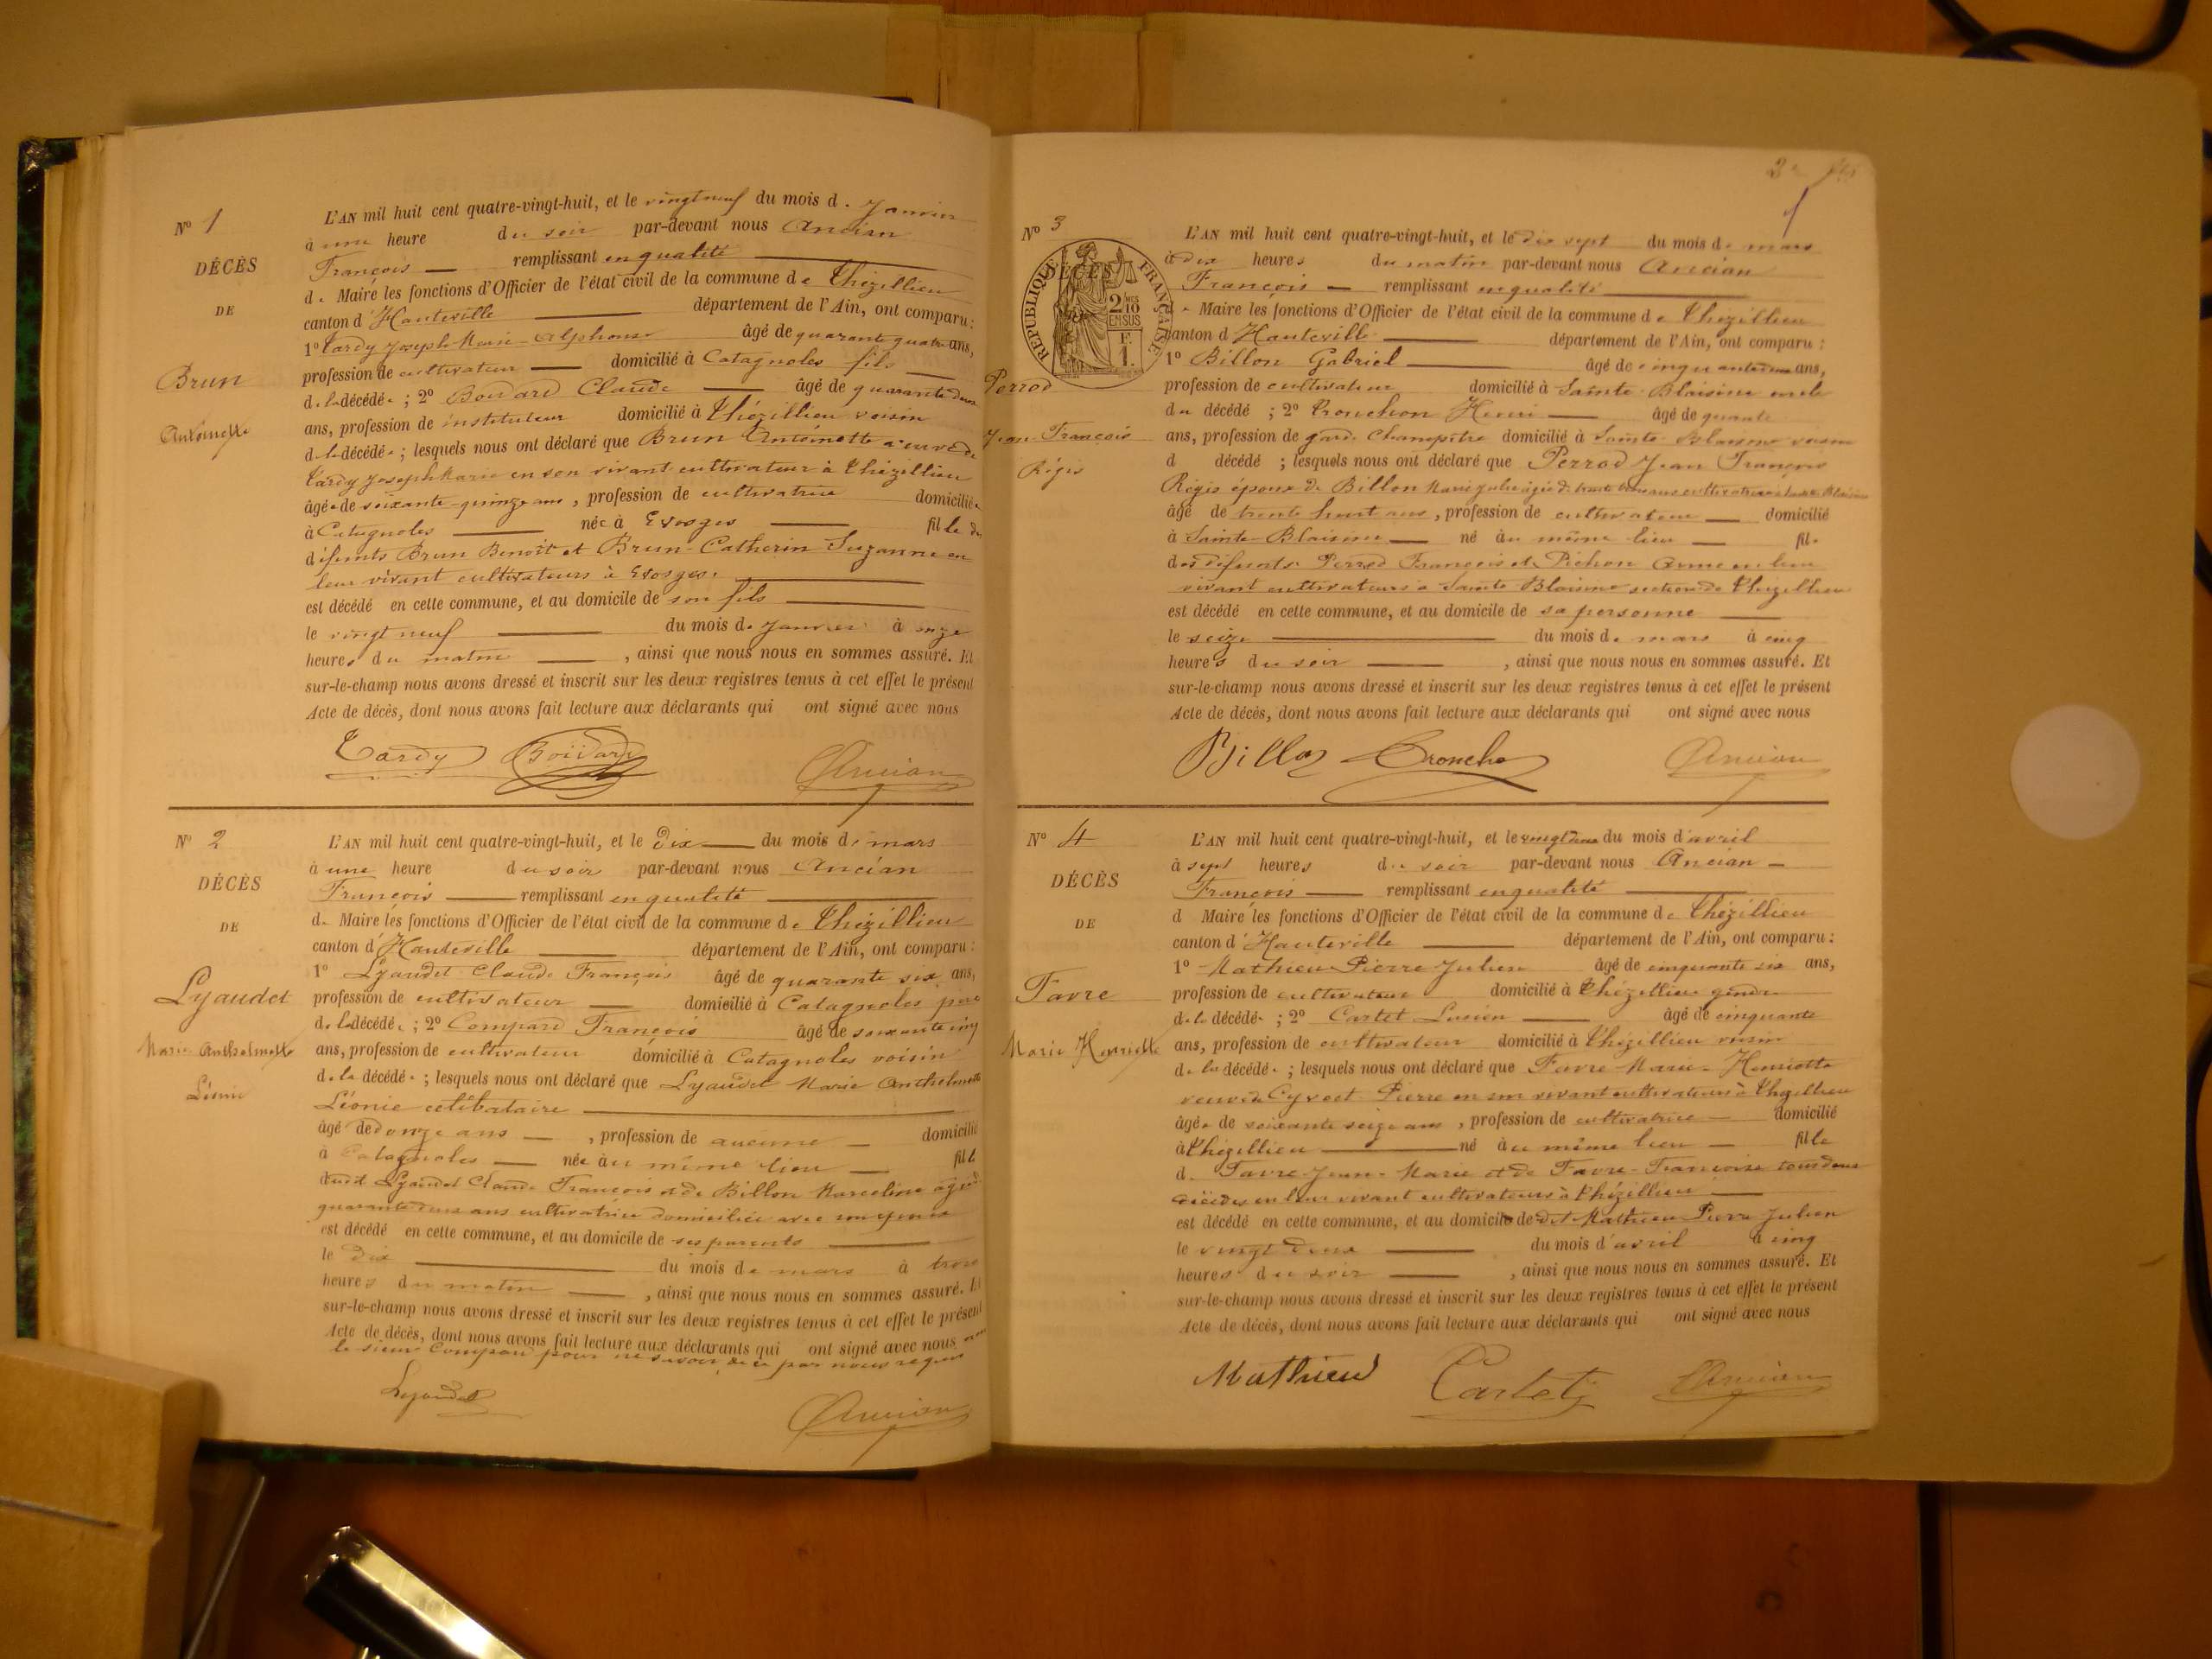 N° 1
DÉCÈS
DE
Brun
Antoinette
L'AN mil huit cent quatre-vingt-huit, et le vingt neuf du mois de Janvier
à une heure du soir par-devant nous Ancian
François remplissant en qualité
de Maire les fonctions d'Officier de l'état civil de la commune de Thézillieu
canton d'Hauteville département de l'Ain, ont comparu :
1° Tardy Joseph Marie Alphonse âgé de quarante quatre ans,
profession de cultivateur domicilié à Catagnoles fils
de la décédée ; 2° Boidard Claude âgé de quarante deux
ans, profession de instituteur domicilié à Thézillieu voisin
de la décédée ; lesquels nous ont déclaré que Brun Antoinette veuve de
Tardy Joseph Marie en son vivant cultivateur à Thézillieu
âgée de soixante-quinze ans, profession de cultivatrice domiciliée
à Catagnoles née à Evosges fille de
défunts Brun Benoît et Brun-Catherin Suzanne en
leur vivant cultivateurs à Evosges.
est décédé en cette commune, et au domicile de son fils
le vingt neuf du mois de Janvier à onze
heures du matin , ainsi que nous nous en sommes assuré. Et
sur-le-champ nous avons dressé et inscrit sur les deux registres tenus à cet effet le présent
Acte de décès, dont nous avons fait lecture aux déclarants qui ont signé avec nous
Tardy Boidard Ancian
N° 2
DÉCÈS
DE
Lyaudet
Marie Anthelmette
Léonie
L'AN mil huit cent quatre-vingt-huit, et le Dix du mois de mars
à une heure du soir par-devant nous Ancian
François remplissant en qualité
de Maire les fonctions d'Officier de l'état civil de la commune de Thézillieu
canton d'Hauteville département de l'Ain, ont comparu :
1° Lyaudet Claude François âgé de quarante six ans,
profession de cultivateur domicilié à Catagnoles père
de la décédée ; 2° Compard François âgé de soixante cinq
ans, profession de cultivateur domicilié à Catagnoles voisin
de la décédée ; lesquels nous ont déclaré que Lyaudet Marie Anthelmette
Léonie célibataire
âgé de douze ans , profession de aucune domicilié
à Catagnoles née au même lieu fille
dudit Lyaudet Claude François et de Billon Marceline âgée de
quarante deux ans cultivatrice domiciliée avec son époux
est décédé en cette commune, et au domicile de ses parents
le Dix du mois de mars à trois
heures du matin , ainsi que nous nous en sommes assuré. Et
sur-le-champ nous avons dressé et inscrit sur les deux registres tenus à cet effet le présent
Acte de décès, dont nous avons fait lecture aux déclarants qui ont signé avec nous non
le sieur Compard pour ne savoir de ce par nous requis
Lyaudet Ancian
N° 3
RÉPUBLIQUE FRANÇAISE
DÉCÈS
2/10 EN SUS
1 F.
Perrod
Jean François
Régis
L'AN mil huit cent quatre-vingt-huit, et le dix sept du mois de mars
à dix heures du matin par-devant nous Ancian
François remplissant en qualité
de Maire les fonctions d'Officier de l'état civil de la commune de Thézillieu
canton d'Hauteville département de l'Ain, ont comparu :
1° Billon Gabriel âgé de cinquante deux ans,
profession de cultivateur domicilié à Sainte-Blaisine oncle
du décédé ; 2° Tronchon Henri âgé de
ans, profession de garde champêtre domicilié à Sainte-Blaisine voisin
d décédé ; lesquels nous ont déclaré que Perrod Jean François
Régis époux de Billon Marie Julie âgée de trente trois ans cultivatrice à Sainte Blaisine
âgé de trente huit ans, profession de cultivateur domicilié
à Sainte-Blaisine né au même lieu fils
des défunts Perrod François et Pichon Anne en leur
vivant cultivateurs à Sainte Blaisine section de Thézillieu
est décédé en cette commune, et au domicile de sa personne
le seize du mois de mars à cinq
heures du soir , ainsi que nous nous en sommes assuré. Et
sur-le-champ nous avons dressé et inscrit sur les deux registres tenus à cet effet le présent
Acte de décès, dont nous avons fait lecture aux déclarants qui ont signé avec nous
Billon Tronchon Ancian
N° 4
DÉCÈS
DE
Favre
Marie Henriette
L'AN mil huit cent quatre-vingt-huit, et le vingt deux du mois d'avril
à sept heures du soir par-devant nous Ancian
François remplissant en qualité
d Maire les fonctions d'Officier de l'état civil de la commune de Thézillieu
canton d'Hauteville département de l'Ain, ont comparu :
1° Mathieu Pierre Julien âgé de cinquante six ans,
profession de cultivateur domicilié à Thézillieu gendre
de la décédée ; 2° Cartet Lucien âgé de cinquante
ans, profession de cultivateur domicilié à Thézillieu voisin
de la décédée ; lesquels nous ont déclaré que Favre Marie-Henriette
veuve de Cyvoct Pierre en son vivant cultivateur à Thézillieu
âgée de soixante seize ans, profession de cultivatrice domicilié
à Thézillieu né au même lieu fille
de Favre Jean-Marie et de Favre-Françoise tous deux
décédés en leur vivant cultivateurs à Thézillieu
est décédé en cette commune, et au domicile de dit Mathieu Pierre Julien
le vingt deux du mois d'avril à cinq
heures du soir , ainsi que nous nous en sommes assuré. Et
sur-le-champ nous avons dressé et inscrit sur les deux registres tenus à cet effet le présent
Acte de décès, dont nous avons fait lecture aux déclarants qui ont signé avec nous
Mathieu Cartet Ancian